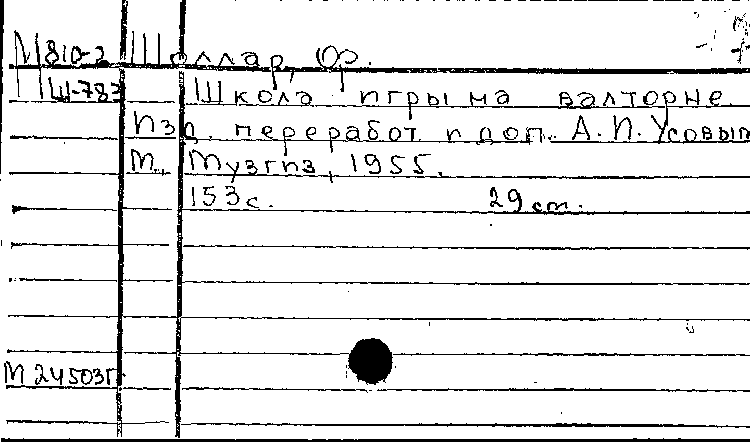 М810-2 Шоллар, Ф.
Ш-783 Школа игры на валторне.
Изд. переработ и доп. А. И. Усовым
М., Музгиз, 1955.
153 с. 29 cm.
М 24503г